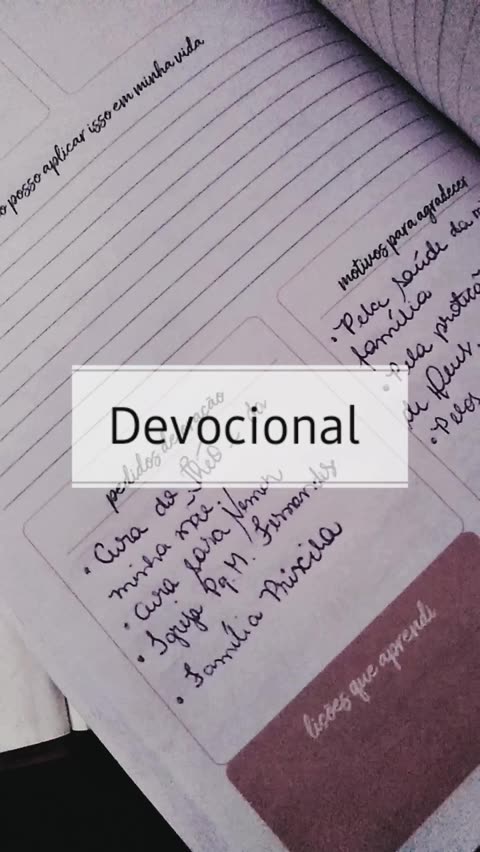 o posso aplicar isso em minha vida
motivos para agradecer
• Pela saúde da m
família
• Pela proteçã
de Deus.
• Pelos
Devocional
pedidos de oração
• Cura da
minha mãe
• Cura para
• Igreja Pq. M. Fernandes
• Família Priscila
lições que aprendi